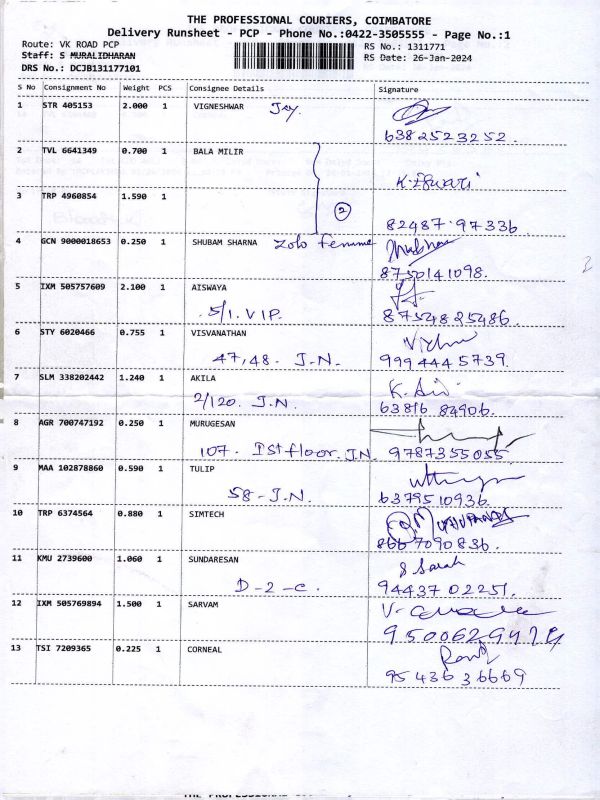 THE PROFESSIONAL COURIERS, COIMBATORE
Delivery Runsheet - PCP - Phone No.:0422-3505555 - Page No.:1
Route: VK ROAD PCP RS No.: 1311771
Staff: S MURALIDHARAN RS Date: 26-Jan-2024
DRS No.: DCJB131177101
S No Consignment No Weight PCS Consignee Details Signature
1 STR 405153 2.000 1 VIGNESHWAR Jey.
6382523252.
2 TVL 6641349 0.700 1 BALA MILIR
K. Eswari
3 TRP 4960854 1.590 1
2
82487 97336
4 GCN 9000018653 0.250 1 SHUBAM SHARNA Zolo femme
8750141098.
5 IXM 505757609 2.100 1 AISWAYA
5/1. VIP. 87548 25486.
6 STY 6020466 0.755 1 VISVANATHAN
47,48. J.N. 9994445739.
7 SLM 338202442 1.240 1 AKILA
2/120. J.N. 63816 84906.
8 AGR 700747192 0.250 1 MURUGESAN
107. Ist floor. J.N. 9787355055
9 MAA 102878860 0.590 1 TULIP
58-J.N. 6379510936.
10 TRP 6374564 0.880 1 SIMTECH
8667090836.
11 KMU 2739600 1.060 1 SUNDARESAN
S Sarah
D-2-C. 94437 02251.
12 IXM 505769894 1.500 1 SARVAM
13 TSI 7209365 0.225 1 CORNEAL
95436 36669
2